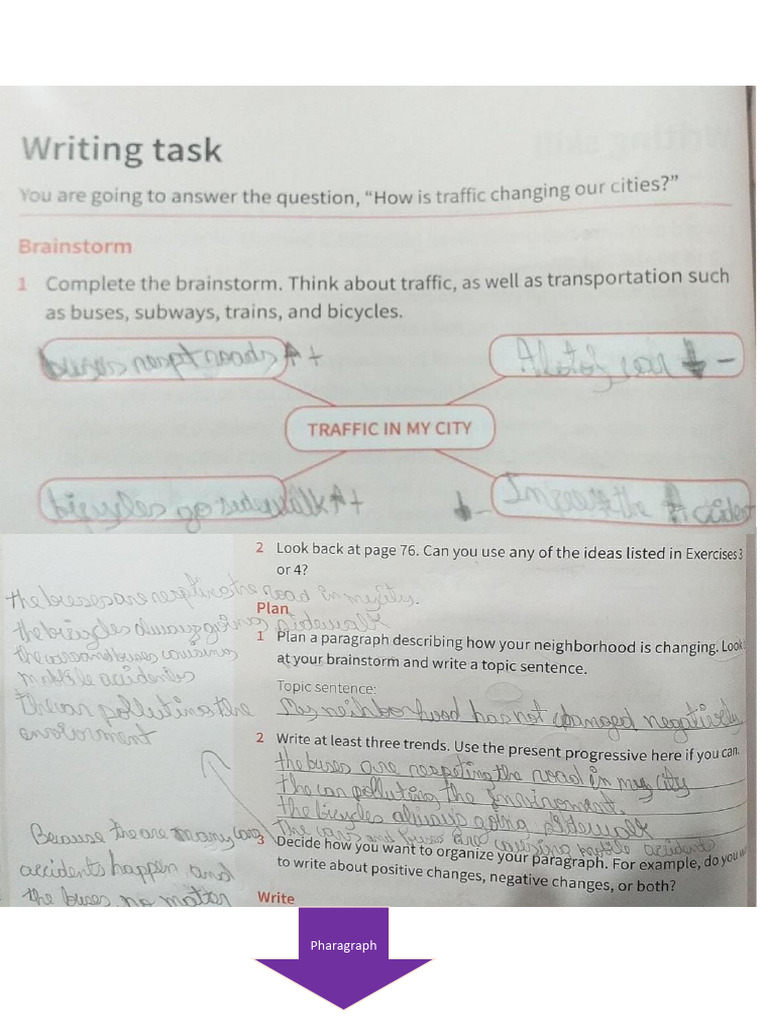 Writing task
You are going to answer the question, “How is traffic changing our cities?”
Brainstorm
1 Complete the brainstorm. Think about traffic, as well as transportation such
as buses, subways, trains, and bicycles.
buses respt roads +
A lot of car -
TRAFFIC IN MY CITY
bicycles go sidewalk +
- the Accident
2 Look back at page 76. Can you use any of the ideas listed in Exercises 3
or 4?
the buses are the road in my city.
the bicycles always going sidewalk
the cars and buses causing
accidentes
the car polluting the
Plan
1 Plan a paragraph describing how your neighborhood is changing. Look
at your brainstorm and write a topic sentence.
Topic sentence:
My neighborhood has not changed negatively
2 Write at least three trends. Use the present progressive here if you can.
the buses are respeting the road in my city
the car polluting the
the bicycles always going sidewalk
The cars and buses are causing accidents
3 Decide how you want to organize your paragraph. For example, do you
to write about positive changes, negative changes, or both?
Because the are many cars
accidents happen and
the buses no matter
Write
Pharagraph